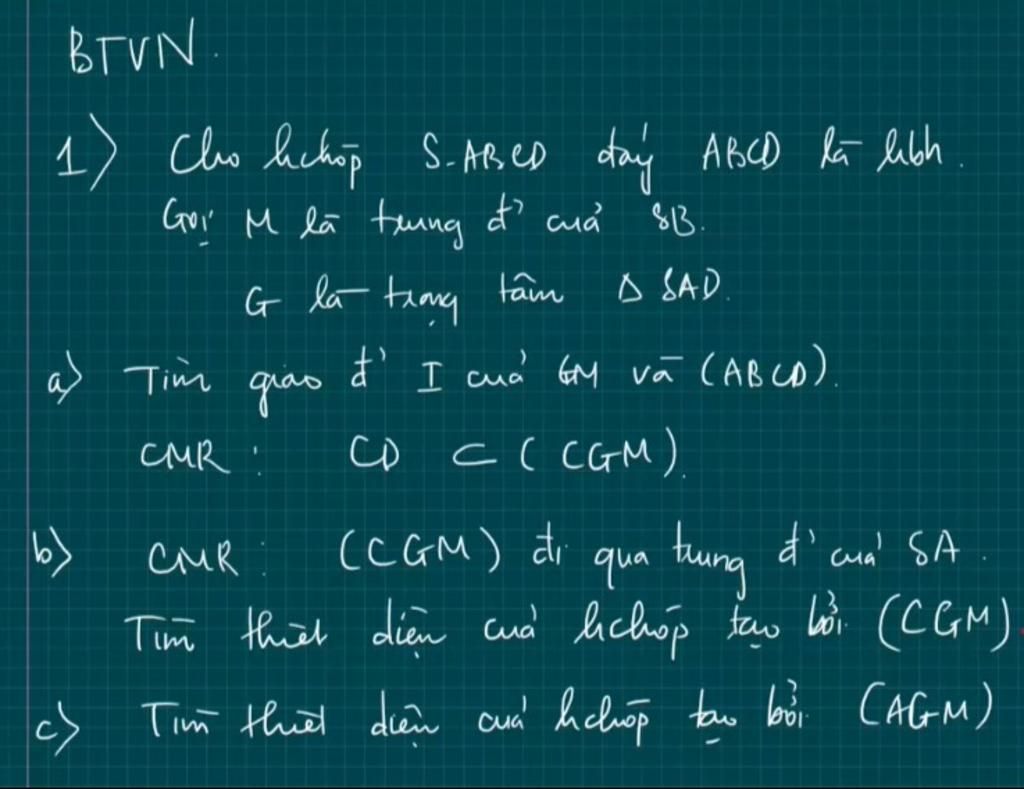 BTVN.
1) Cho hchóp S.ABCD đáy ABCD là hbh.
Gọi M là trung đ' của SB.
G là trọng tâm Δ SAD.
a) Tìm giao đ' I của GM và (ABCD).
CMR: CD ⊂ (CGM).
b) CMR: (CGM) đi qua trung đ' của SA.
Tìm thiết diện của hchóp tạo bởi (CGM).
c) Tìm thiết diện của hchóp tạo bởi (AGM)